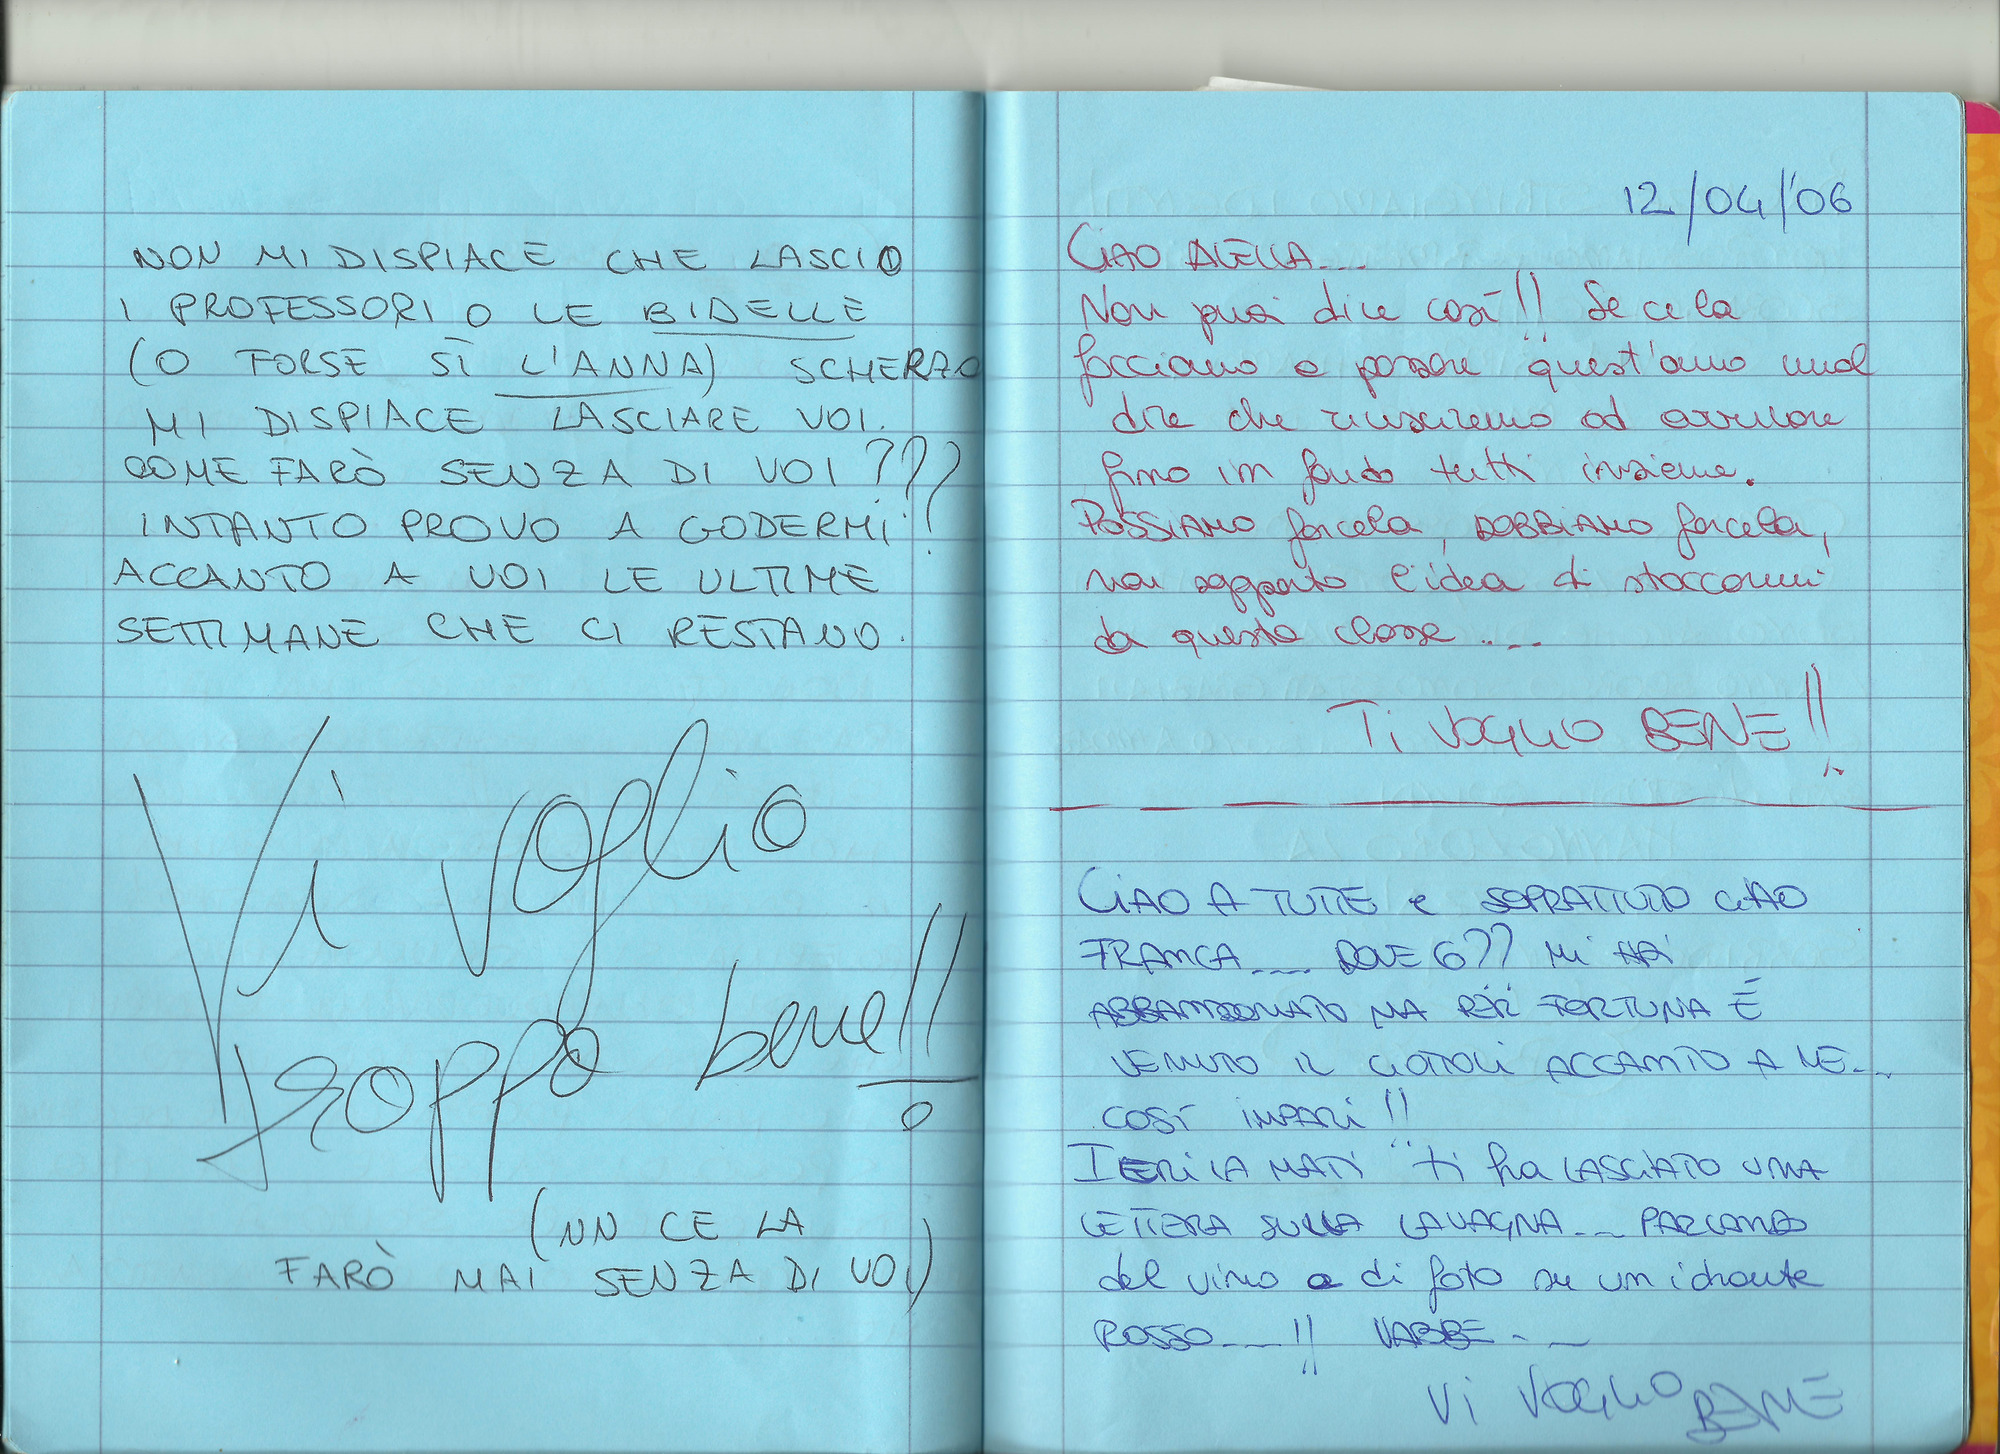 NON MI DISPIACE CHE LASCIO
I PROFESSORI O LE BIDELLE
(O FORSE SÌ L'ANNA) SCHERZO
MI DISPIACE LASCIARE VOI.
COME FARÒ SENZA DI VOI???
INTANTO PROVO A GODERMI
ACCANTO A VOI LE ULTIME
SETTIMANE CHE CI RESTANO.
Vi voglio
troppo bene!!
(NN CE LA
FARÒ MAI SENZA DI VOI)
12/04/'06
CIAO
Non puoi dire così!! Se ce la
facciamo a passare quest'anno vuol
dire che riusciremo ad arrivare
fino in fondo tutti insieme.
POSSIAMO farcela, DOBBIAMO farcela,
non sopporto l'idea di staccarmi
da questa classe ....
Ti VOGLIO BENE!!
CIAO A TUTTE e SOPRATTUTTO CIAO
FRANCA.... DOVE 6?? Mi HAI
ABBANDONATO MA PER FORTUNA É
VENUTO IL CIOTTOLI ACCANTO A ME...
COSÌ IMPARI!!
IERI LA MATI ti ha LASCIATO UNA
LETTERA SULLA LAVAGNA... PARLANDO
del vino e di foto su un idrante
ROSSO....!! VABBE...
Vi VOGLIO BENE